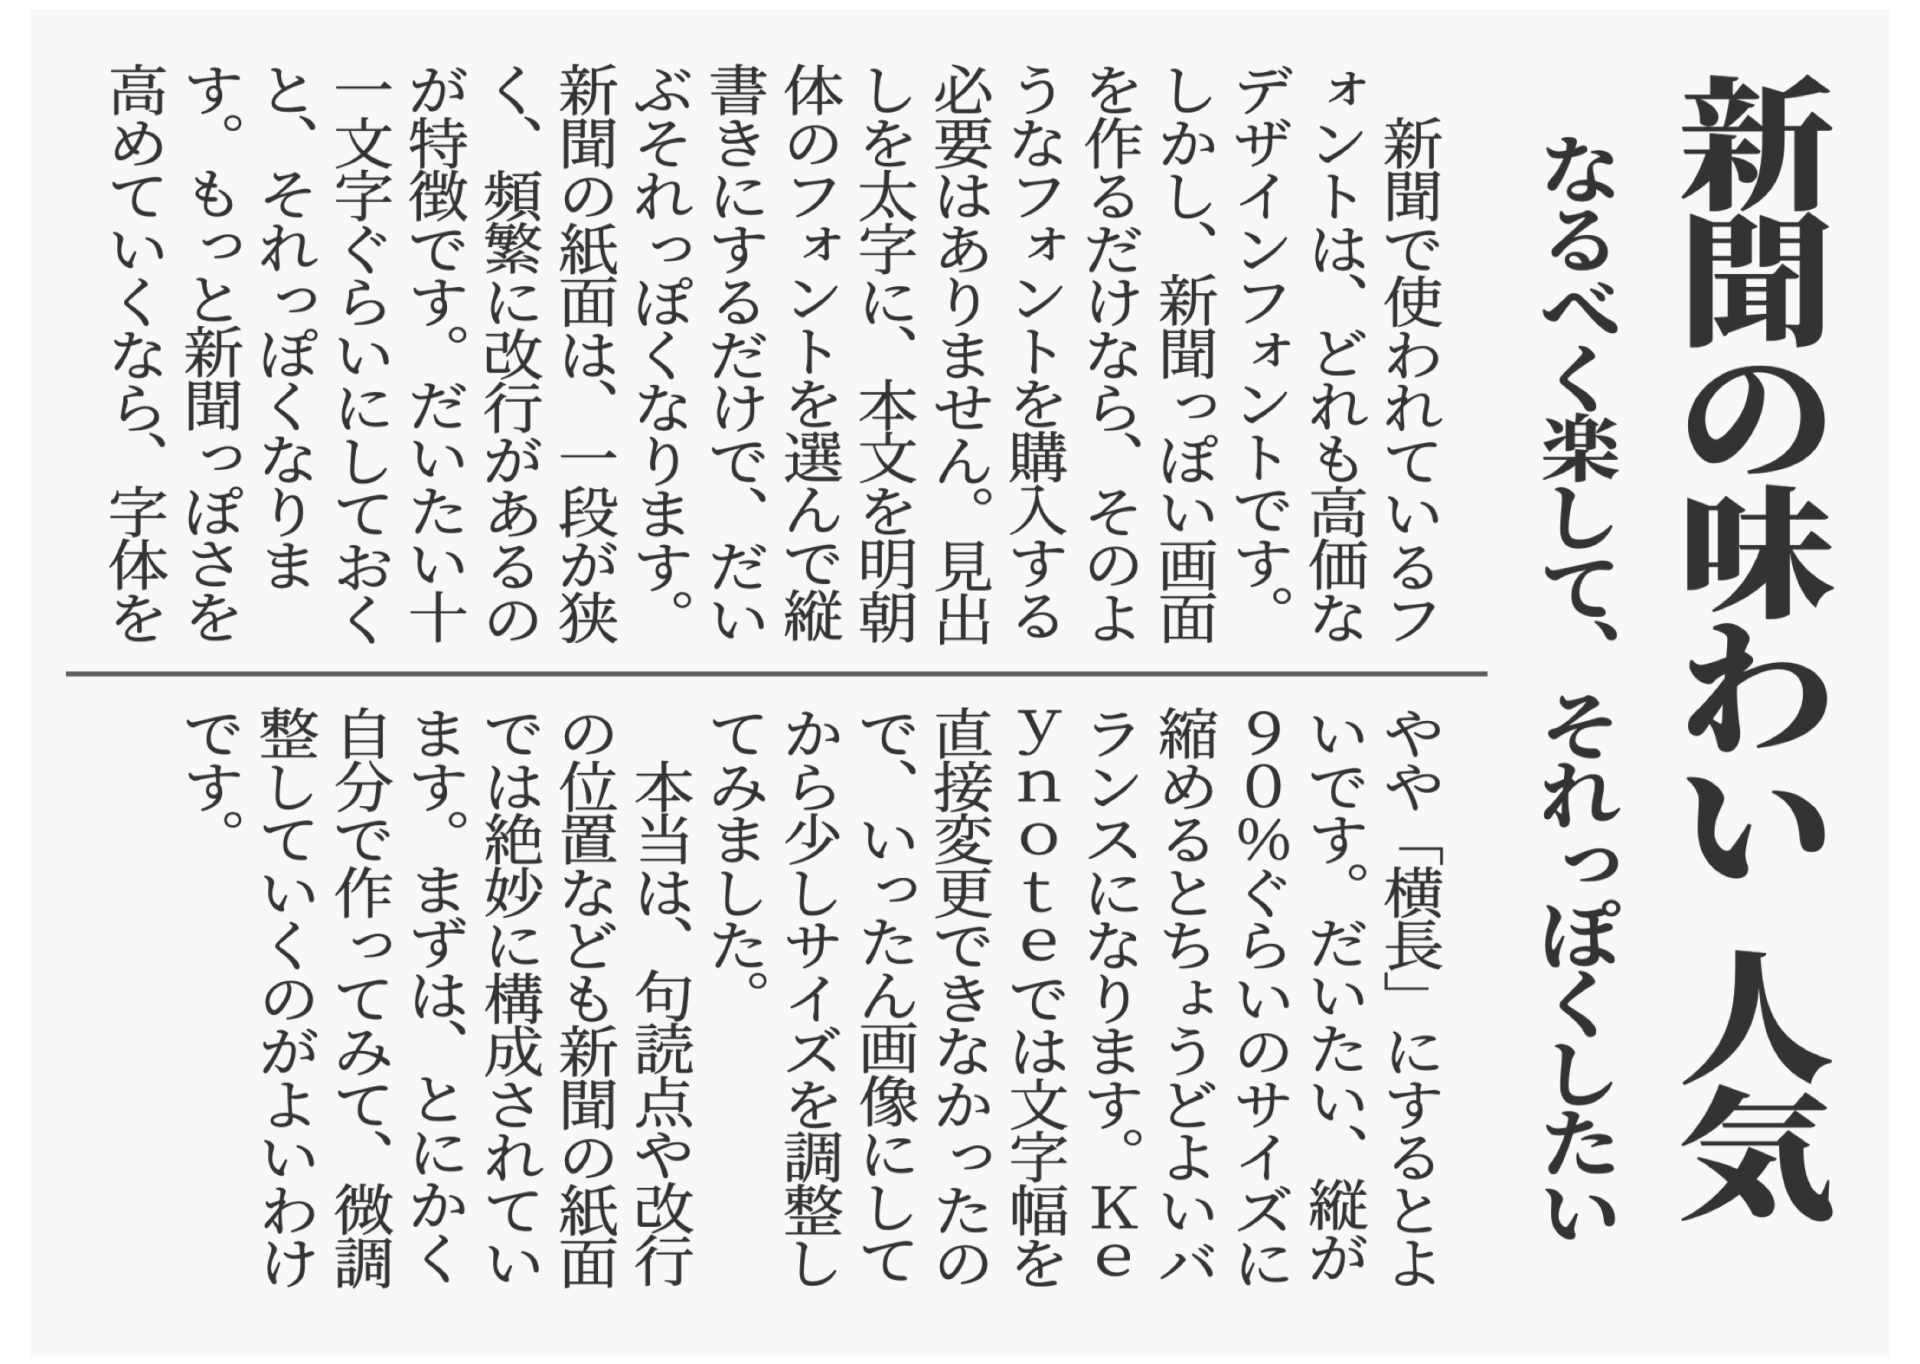 新聞の味わい 人気
なるべく楽して、それっぽくしたい
　新聞で使われているフ
ォントは、どれも高価な
デザインフォントです。
しかし、新聞っぽい画面
を作るだけなら、そのよ
うなフォントを購入する
必要はありません。見出
しを太字に、本文を明朝
体のフォントを選んで縦
書きにするだけで、だい
ぶそれっぽくなります。
新聞の紙面は、一段が狭
く、頻繁に改行があるの
が特徴です。だいたい十
一文字ぐらいにしておく
と、それっぽくなりま
す。もっと新聞っぽさを
高めていくなら、字体を
やや「横長」にするとよ
いです。だいたい、縦が
９０％ぐらいのサイズに
縮めるとちょうどよいバ
ランスになります。Ｋｅ
ｙｎｏｔｅでは文字幅を
直接変更できなかったの
で、いったん画像にして
から少しサイズを調整し
てみました。
　本当は、句読点や改行
の位置なども新聞の紙面
では絶妙に構成されてい
ます。まずは、とにかく
自分で作ってみて、微調
整していくのがよいわけ
です。